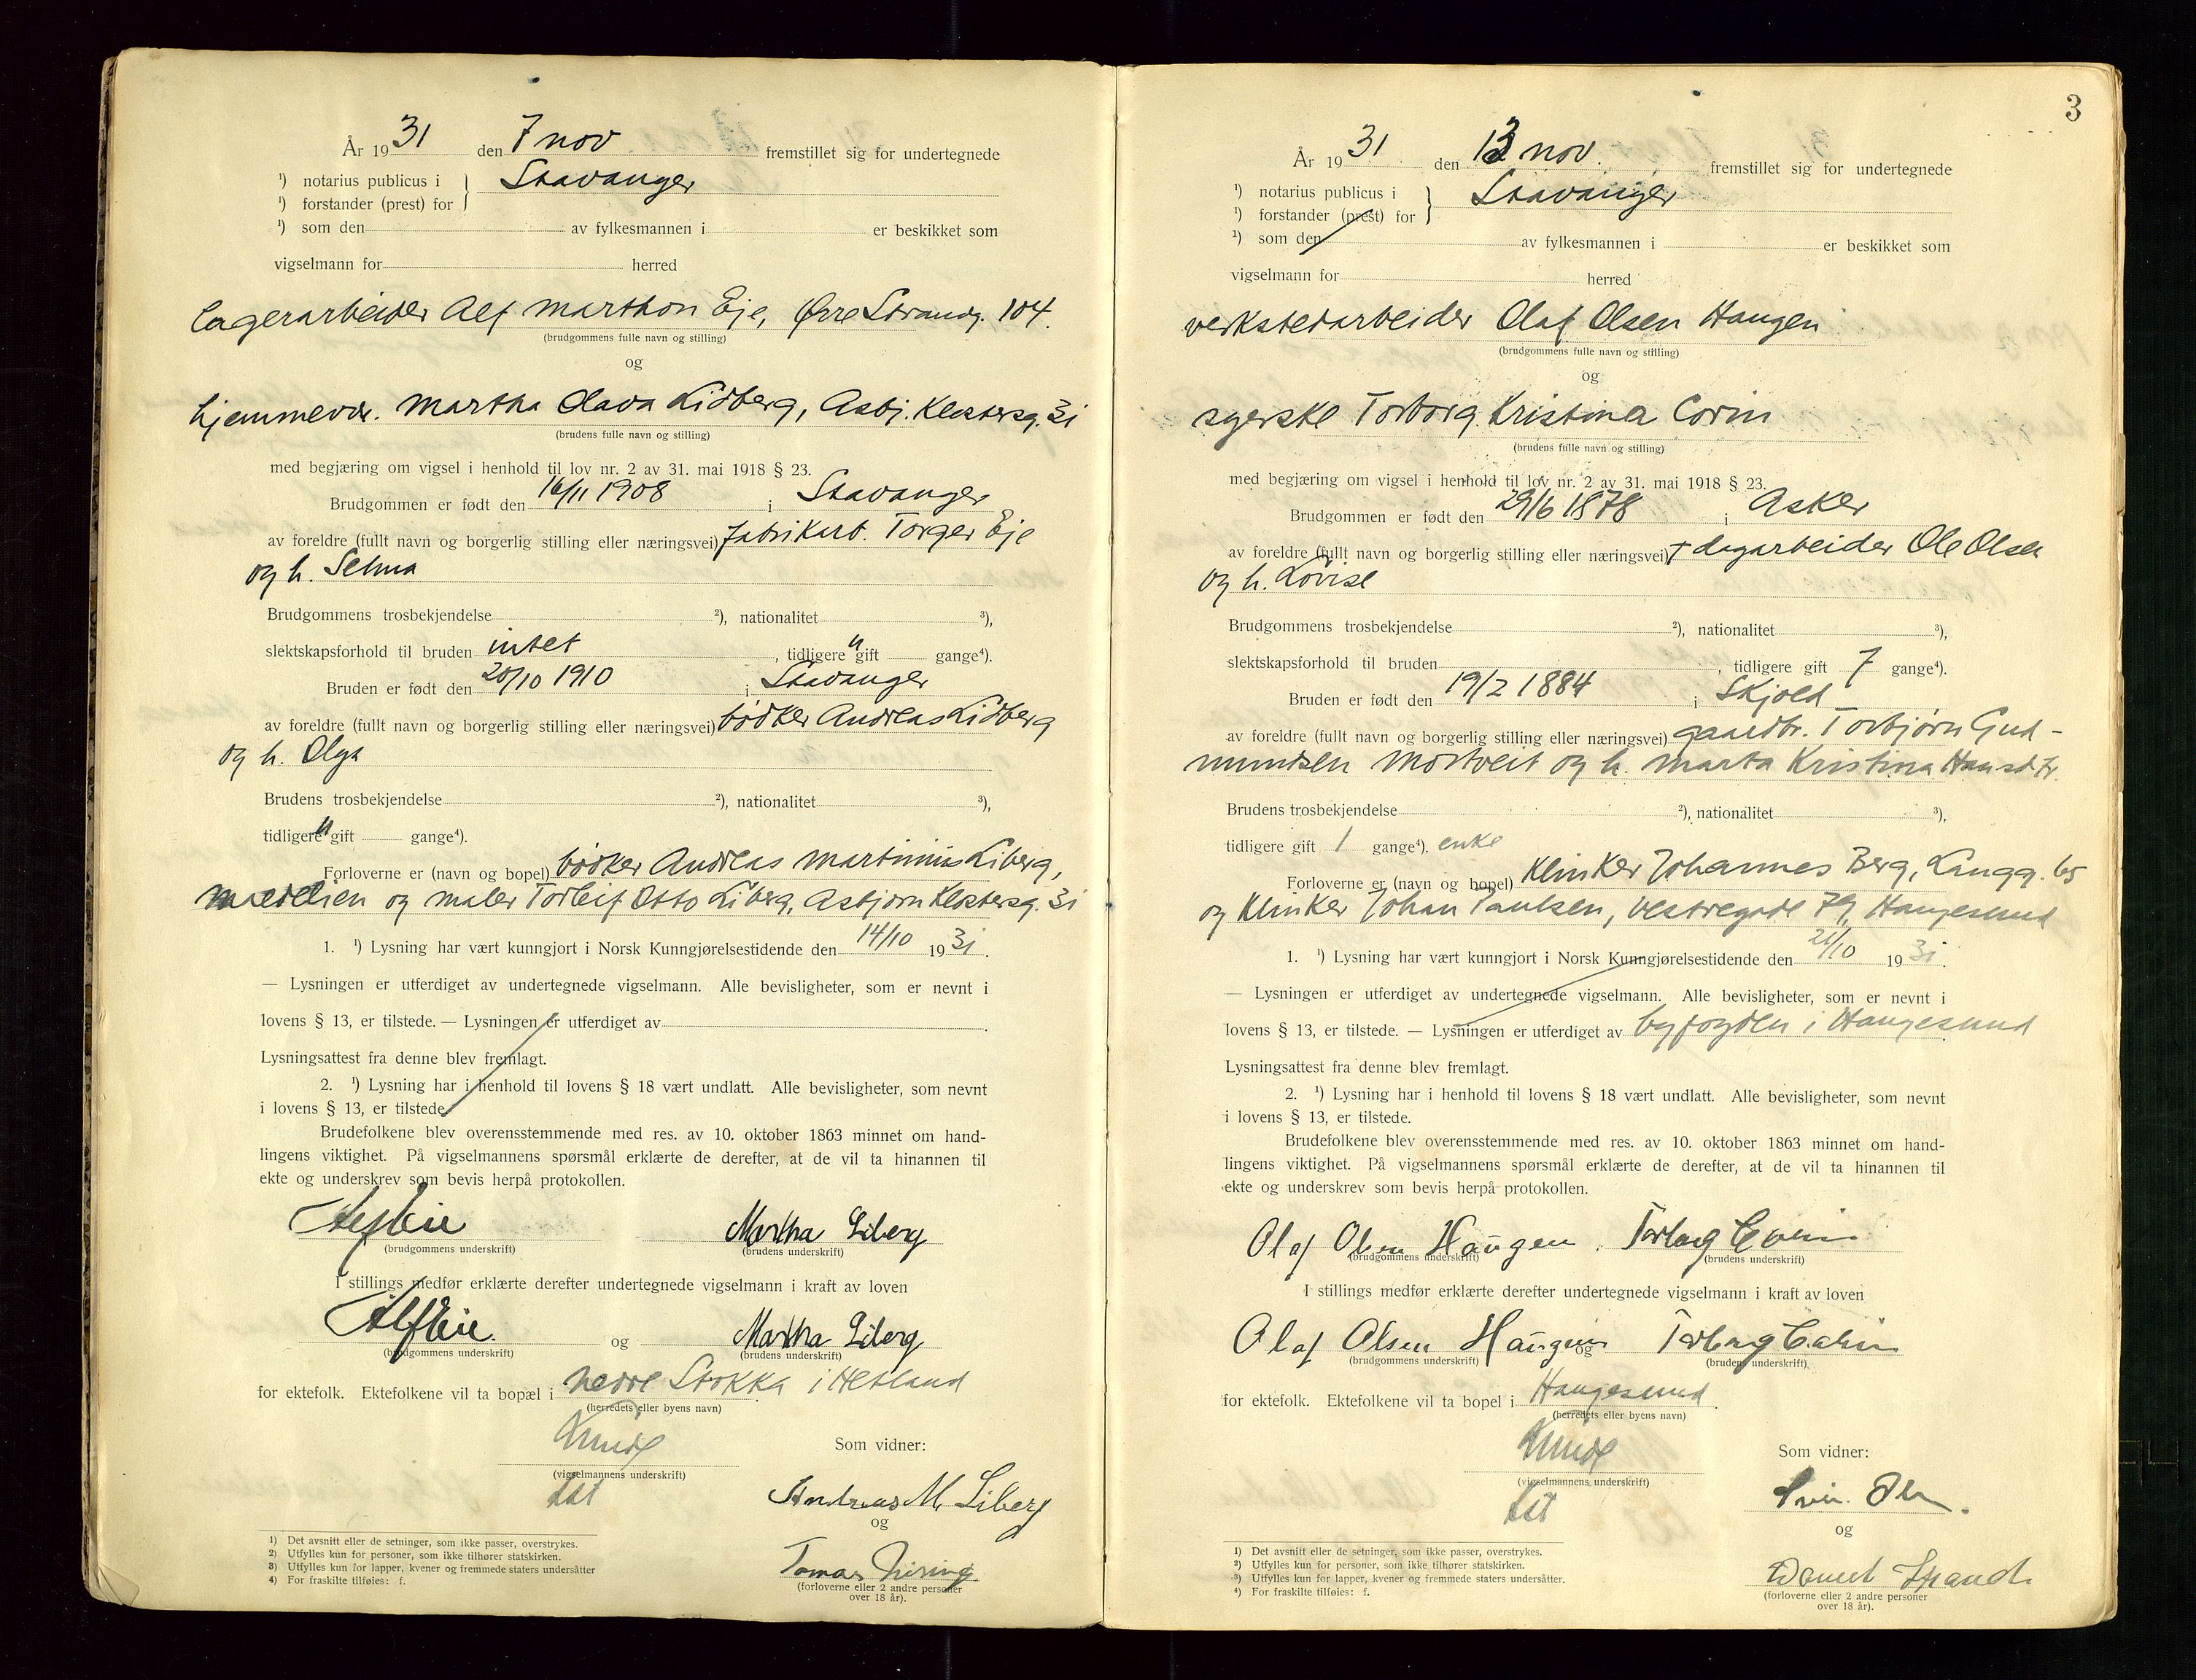 År 1931 den 7 nov fremstillet sig for undertegnede
¹) notarius publicus i } Stavanger
¹) forstander (prest) for
¹) som den av fylkesmannen i er beskikket som
vigselmann for herred
lagerarbeider Alf Marthon Eje, Øvre Strandg. 104.
(brudgommens fulle navn og stilling)
og
hjemmevær. Martha Olava Lidberg, Asbj. Klostersg. 31
(brudens fulle navn og stilling)
med begjæring om vigsel i henhold til lov nr. 2 av 31. mai 1918 § 23.
Brudgommen er født den 16/11 1908 i Stavanger
av foreldre (fullt navn og borgerlig stilling eller næringsvei) fabrikarb. Torger Eje
og h. Selma
Brudgommens trosbekjendelse ²), nationalitet ³),
slektskapsforhold til bruden intet, tidligere u gift gange⁴).
Bruden er født den 20/10 1910 i Stavanger
av foreldre (fullt navn og borgerlig stilling eller næringsvei) bødker Andreas Lidberg
og h. Olga
Brudens trosbekjendelse ²), nationalitet ³),
tidligere u gift gange⁴).
Forloverne er (navn og bopel) bødker Andreas Martinius Liberg,
og maler Torleif Otto Liberg, Asbjørn Klostersg. 31
1. ¹) Lysning har vært kunngjort i Norsk Kunngjørelsestidende den 14/10 1931.
— Lysningen er utferdiget av undertegnede vigselmann. Alle bevisligheter, som er nevnt i
lovens § 13, er tilstede. — Lysningen er utferdiget av .
Lysningsattest fra denne blev fremlagt.
2. ¹) Lysning har i henhold til lovens § 18 vært undlatt. Alle bevisligheter, som nevnt
i lovens § 13, er tilstede
Brudefolkene blev overensstemmende med res. av 10. oktober 1863 minnet om hand-
lingens viktighet. På vigselmannens spørsmål erklærte de derefter, at de vil ta hinannen til
ekte og underskrev som bevis herpå protokollen.
Alf Eie Martha Liberg
(brudgommens underskrift) (brudens underskrift)
I stillings medfør erklærte derefter undertegnede vigselmann i kraft av loven
Alf Eie og Martha Liberg
(brudgommens underskrift) (brudens underskrift)
for ektefolk. Ektefolkene vil ta bopæl i nedre Stokka i Hetland.
(herredets eller byens navn)
Som vidner:
(vigselmannens underskrift)
Andreas M. Liberg
og
Tomas
(forloverne eller 2 andre personer
over 18 år).
1) Det avsnitt eller de setninger, som ikke passer, overstrykes.
2) Utfylles kun for personer, som ikke tilhører statskirken.
3) Utfylles kun for lapper, kvener og fremmede staters undersåtter
4) For fraskilte tilføies: f.
3
År 1931 den 13 nov. fremstillet sig for undertegnede
¹) notarius publicus i } Stavanger
¹) forstander (prest) for
¹) som den av fylkesmannen i er beskikket som
vigselmann for herred
verkstedarbeider Olaf Olsen Haugen
(brudgommens fulle navn og stilling)
og
syerske Torborg Kristina Corin
(brudens fulle navn og stilling)
med begjæring om vigsel i henhold til lov nr. 2 av 31. mai 1918 § 23.
Brudgommen er født den 29/6 1878 i Asker
av foreldre (fullt navn og borgerlig stilling eller næringsvei) † dagarbeider Ole Olsen
og h. Lovise
Brudgommens trosbekjendelse ²), nationalitet ³),
slektskapsforhold til bruden , tidligere gift 7 gange⁴).
Bruden er født den 19/2 1884 i Skjold
av foreldre (fullt navn og borgerlig stilling eller næringsvei) gaardbr. Torbjørn Gud-
mundsen Mortveit og h. Marta Kristina Hansdtr.
Brudens trosbekjendelse ²), nationalitet ³),
tidligere gift 1 gange⁴). enke
Forloverne er (navn og bopel) Klinker Johannes Berg, Langg. 65
og Klinker Johan Paulsen, Vestregade 79, Haugesund
1. ¹) Lysning har vært kunngjort i Norsk Kunngjørelsestidende den 21/10 1931.
— Lysningen er utferdiget av undertegnede vigselmann. Alle bevisligheter, som er nevnt i
lovens § 13, er tilstede. — Lysningen er utferdiget av byfogden i Haugesund
Lysningsattest fra denne blev fremlagt.
2. ¹) Lysning har i henhold til lovens § 18 vært undlatt. Alle bevisligheter, som nevnt
i lovens § 13, er tilstede.
Brudefolkene blev overensstemmende med res. av 10. oktober 1863 minnet om hand-
lingens viktighet. På vigselmannens spørsmål erklærte de derefter, at de vil ta hinannen til
ekte og underskrev som bevis herpå protokollen.
Olaf Olsen Haugen. Torborg Corin
(brudgommens underskrift) (brudens underskrift)
I stillings medfør erklærte derefter undertegnede vigselmann i kraft av loven
Olaf Olsen Haugen og Torborg Corin
(brudgommens underskrift) (brudens underskrift)
for ektefolk. Ektefolkene vil ta bopel i Haugesund.
(herredets eller byens navn)
Som vidner:
(vigselmannens underskrift)
og
(forloverne eller 2 andre personer
over 18 år).
1) Det avsnitt eller de setninger, som ikke passer, overstrykes.
2) Utfylles kun for personer, som ikke tilhører statskirken.
3) Utfylles kun for lapper, kvener og fremmede staters undersåtter.
4) For fraskilte tilføies: f.